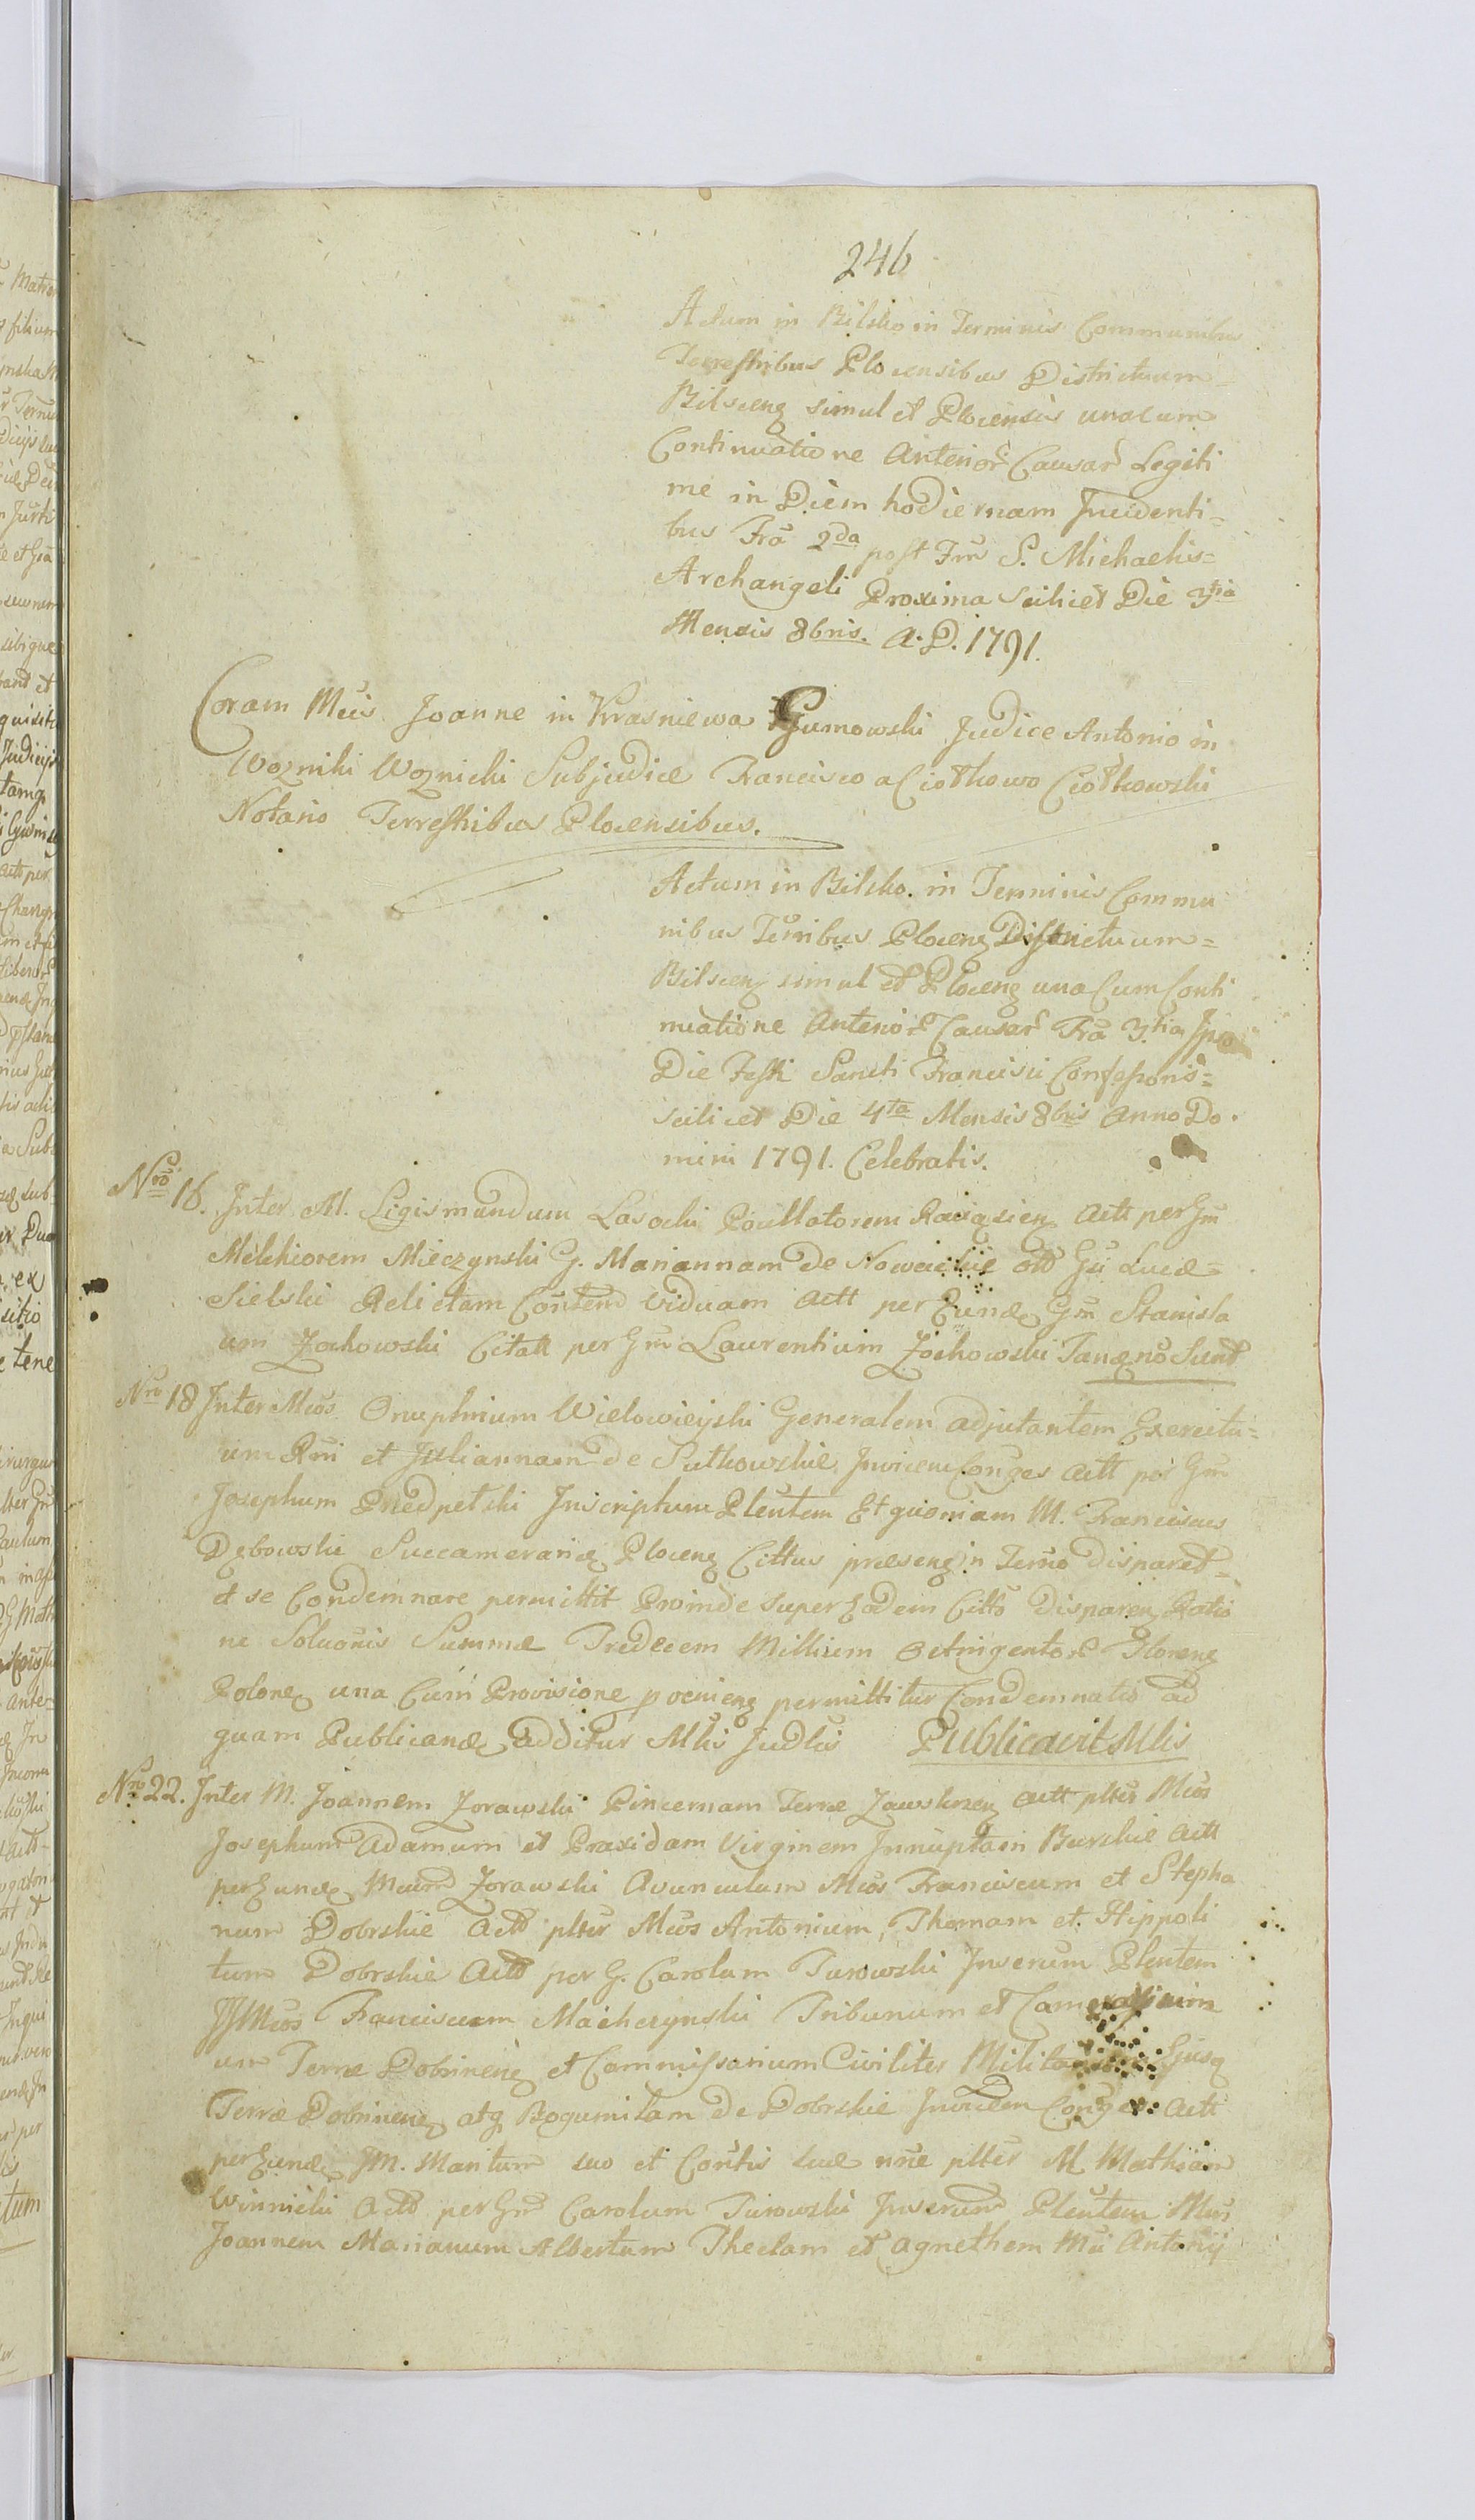 246
Actum in Bilsko in Terminis Communibus
Terrestribus Plocensibus Districtuum=
Bilscenq simul et Plocensis una cum
Continuatione Anterior Causar Legiti
me in Diem hodiernam Incidenti=
bus Fra 2da post Fm S. Michaelis=
Archangeli Proxima scilicet Die 3tia
Mensis 8bris. A.D. 1791.
Coram Mcis Joanne in Krasniewa Gumowski Judice Antonio in
Wozniki Woznicki Subjudice Francisco a Ciołkowo Ciołkowski
Notario Terrestribus Plocensibus.
Actum in Bilsko. in Terminis Commu
nibus Terribus Plocenq Districtuum=
Bilscenq simul et Plocenq una Cum Conti
nuatione Anterior Causar Fra 3tia Ipso
Die Festi Sancti Francisci Confessoris=
scilicet Die 4ta Mensis 8bris Anno Do
mini 1791. Celebratis.
Nro 16. Inter M. Sigismundum Lasocki Pocillatorem Raciązienq Actt per Gm
Melchiorem Mieczynski G. Mariannam de Nowickie olb Gu Lucæ=
Sielski Relictam Contem Viduam Actt per Eundq Gm Stanisla
um Zochowski Citatt per Gm Laurentium Zochowski Tanq no Sunt
Nro 18 Inter Mcos Onuphrium Wielowieyski Generalem adjutantem Exercitu=
um Rni et Juliannam de Sutkowskie Invicem Conges Actt per Gm
Josephum Przedpełski Inscriptum Plentem Et quoniam M. Franciscus
Dębowski Succamerariq Plocenq Cittus præsenq in Terno disparet=
et se Condemnare permittit Proinde super Eodem Citto Disparenq Ratio
ne Soluonis Summæ Tredecem Millium Octingentor Florenq
Polonq una Cum Provisione provenienq permittitur Condemnatio ad
quam Publicandq additur Mlis Judlis Publicavit Mlis
Nro 22. Inter M. Joannem Zorawski Pincernam Terræ Zawskrzenq Actt plter Mcos
Josephum Adamum et Praxidam Virginem Innuptam Burskie Actt
per Eundq Mcum Zorawski Avunculum Mcos Franciscum et Stepha
num Dobrskie Actt plter Mcos Antonium, Thomam et Hippoli
tum Dobrskie Actt per G. Carolum Turowski Inserum Plentem
JJMcos Franciscum Maiherzynski Tribunum et
um Terræ Dobrinenq et Commissarium Civiliter Ejusq
Terræ Dobrinenq atq Bogumilam de Dobrskie Invicem Conges Actt
per Eundq JM. Maritum suo et Contis suæ nne plter M Mathiam
Winnicki Actt per Gm Carolum Turowski Inserum Plentem Mcos
Joannem Marianum Albertum Theclam et Agnethem Mci Antonij